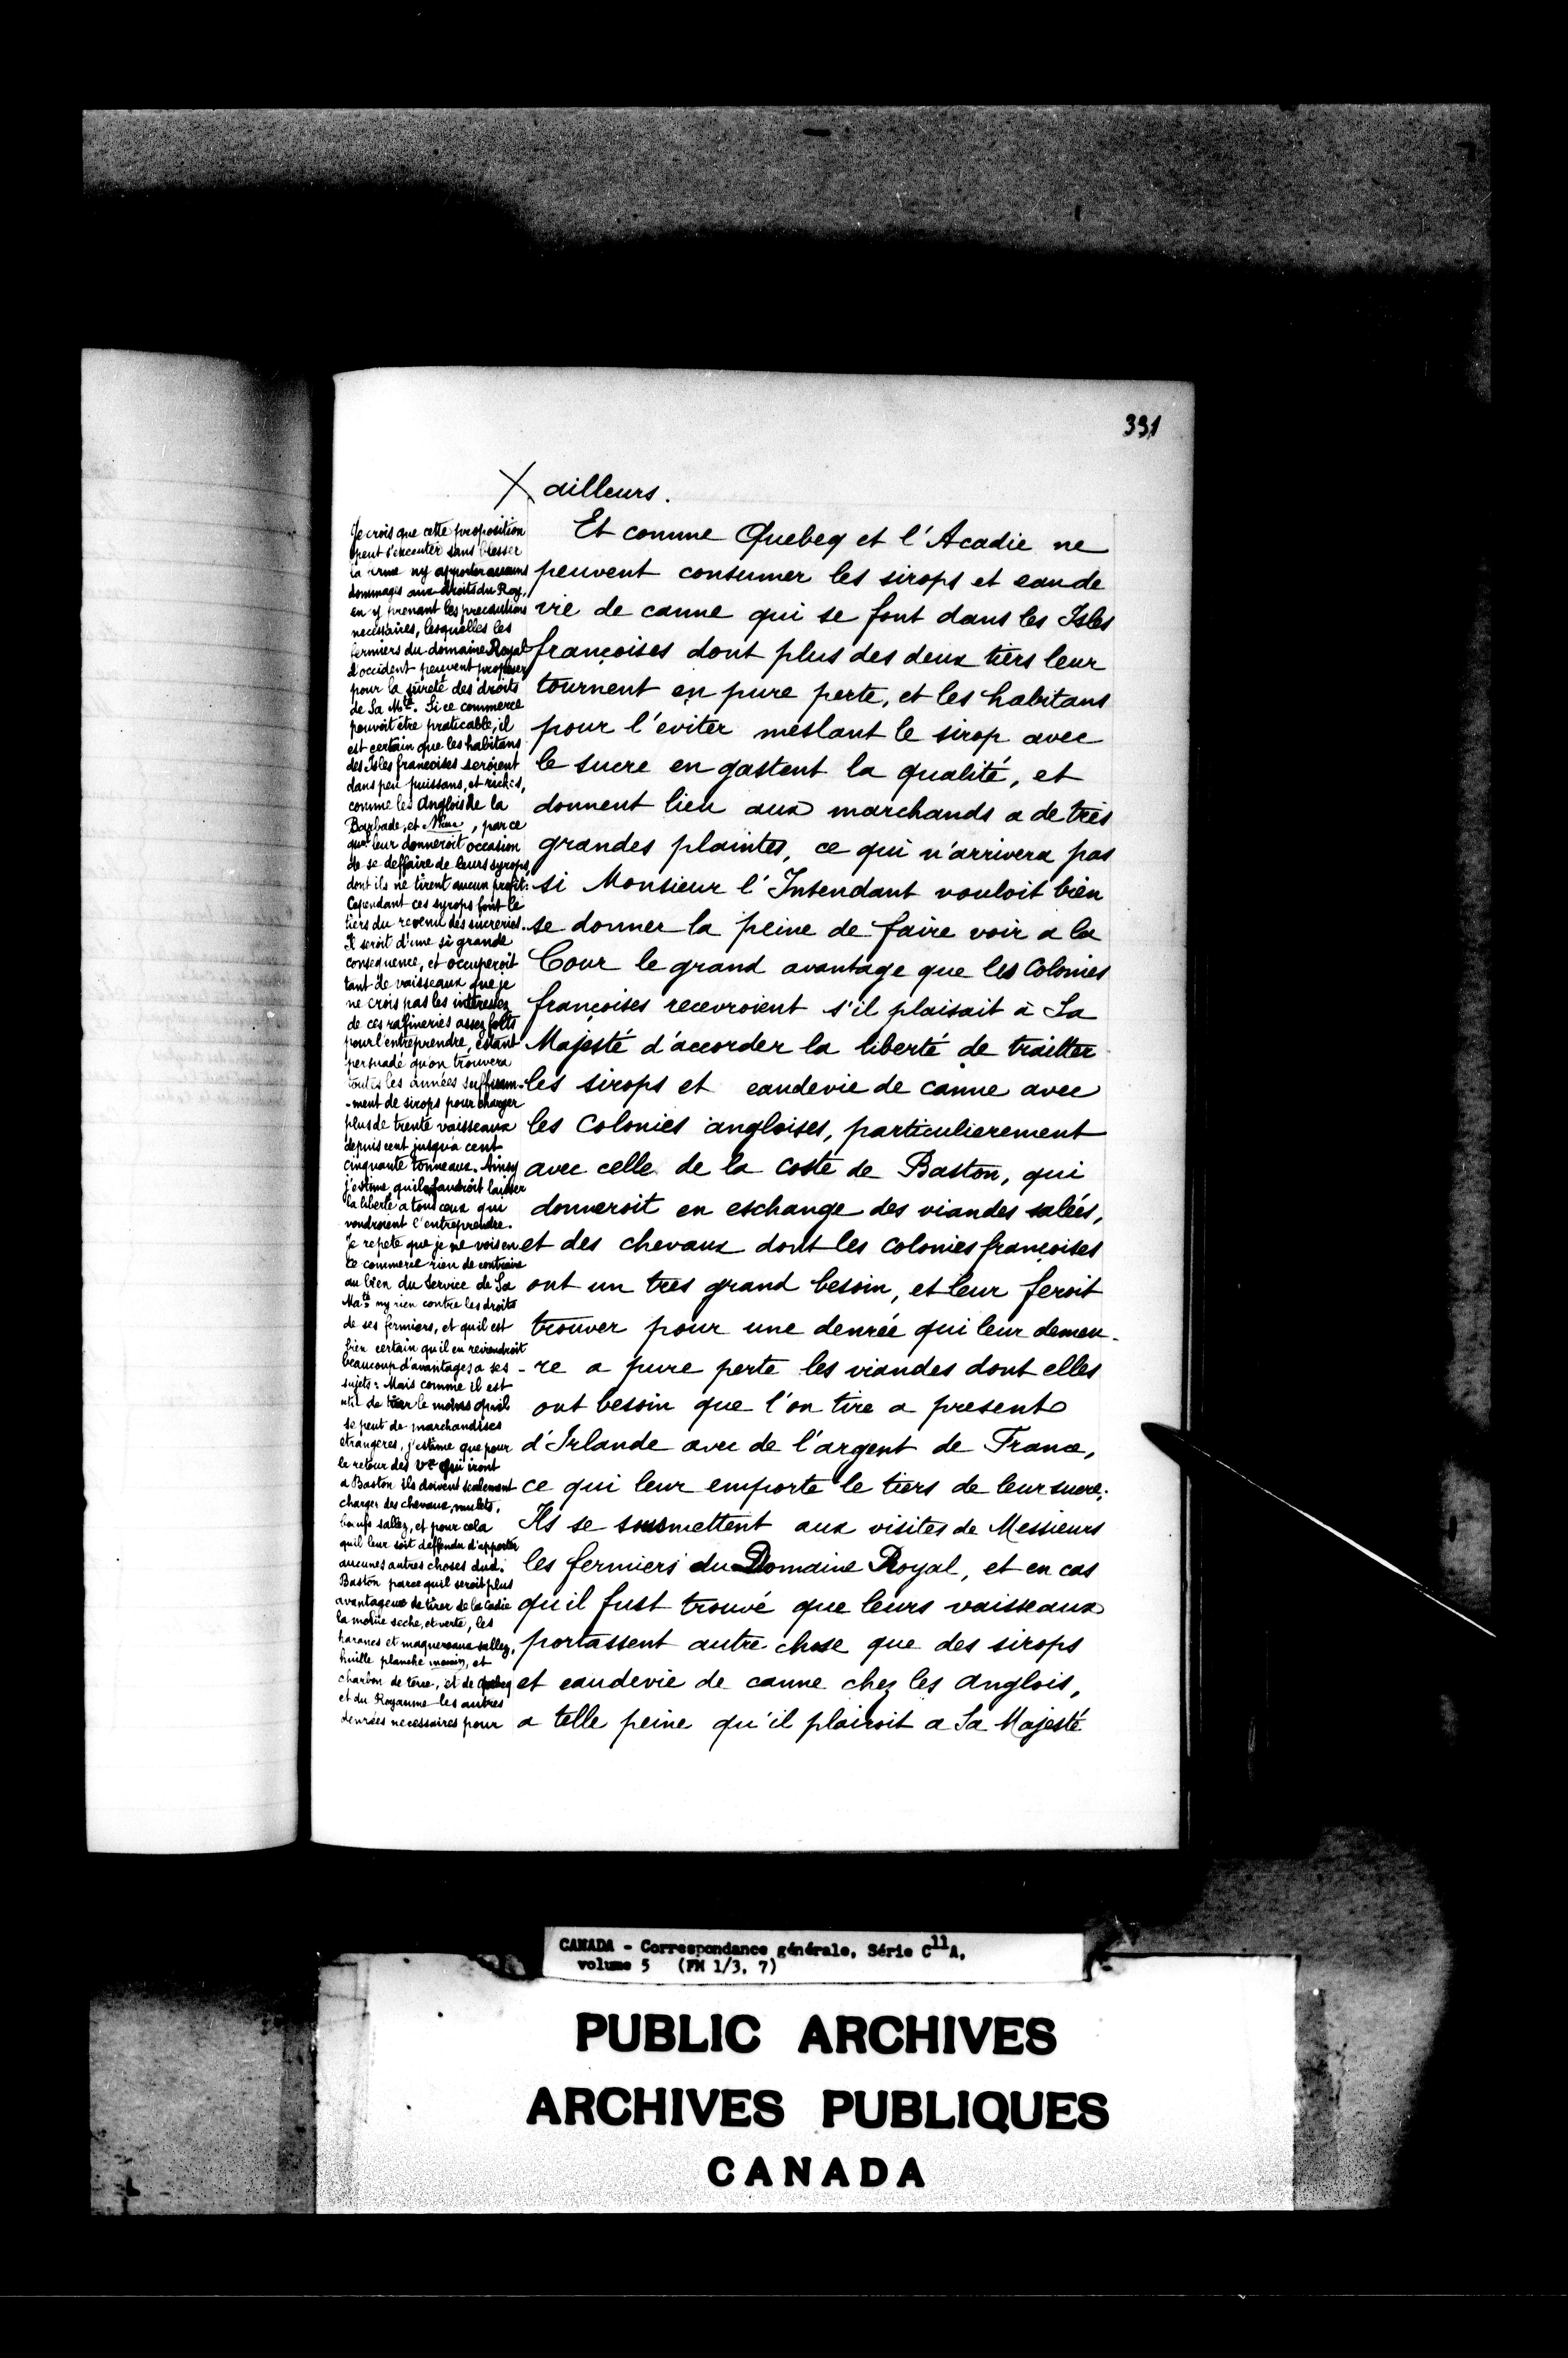 331
X ailleurs.
Je crois que cette proposition
peut s'executer sans blesser
la ny apporter aucuns
dommages aux droits du Roy,
en y prenant les precautions
necessaires, lesquelles les
fermiers du domaine Royal
d'occident peuvent proposer
pour la sûreté des droits
de Sa Mté. Si ce commerce
pouvoit être praticable, il
est certain que les habitans
des Isles francoises seroient
dans peu puissans, et riches,
comme les Anglois de la
Barbade, et , parce
que leur donneroit occasion
de se deffaire de leurs syrops
dont ils ne tirent aucun profit:
Cependant ces syrops font le
tiers du revenu des sucreries.
Il seroit d'une si grande
consequence, et occuperoit
tant de vaisseaux que je
ne crois pas les interessez
de ces rafineries assez forts
pour l'entreprendre, estant
persuadé qu'on trouvera
toutes les années suffisam-
-ment de sirops pour charger
plus de trente vaisseaux
depuis cent jusqu'a cent
cinquante tonneaux. Ainsy
j'estime qu'il faudroit laisser
la liberté a tous ceux qui
voudroient l'entreprendre.
Je repete que je ne vois en
ce commerce rien de contraire
au bien du Service de Sa
Mate ny rien contre les droits
de ses fermiers, et quil est
bien certain qu'il en reviendroit
beaucoup d'avantages a ses
sujets: Mais comme il est
util de tirer le moins qu'il
se peut de marchandises
etrangeres, j'estime que pour
le retour des Vx qui iront
a Baston ils doivent seulement
charger des chevaux, mulets,
boeufs sallez, et pour cela
quil leur soit deffendu d'apporter
aucunes autres choses dud.
Baston parce quil seroit plus
avantageux de tirer de la Cadie
la molue seche, et verte, les
harancs et maquereaux sallez,
huille planche , et
charbon de terre, et de Quebeq
et du Royaume les autres
denrées necessaires pour
Et comme Quebeq et l'Acadie ne
peuvent consumer les sirops et eau de
vie de canne qui se font dans les Isles
françoises dont plus des deux tiers leur
tournent en pure perte, et les habitans
pour l'eviter meslant le sirop avec
le sucre en gastent la qualité, et
donnent lieu aux marchands a de tres
grandes plaintes, ce qui n'arrivera pas
si Monsieur l'Intendant vouloit bien
se donner la peine de faire voir a la
Cour le grand avantage que les Colonies
françoises recevroient s'il plaisait à Sa
Majesté d'accorder la liberté de traitter
les sirops et eaudevie de canne avec
les Colonies angloises, particulierement
avec celle de la coste de Baston, qui
donneroit en eschange des viandes salées,
et des chevaux dont les colonies françoises
ont un tres grand besoin, et leur feroit
trouver pour une denrée qui leur demeu-
-re a pure perte les viandes dont elles
ont besoin que l'on tire a present
d'Irlande avec de l'argent de France,
ce qui leur emporte le tiers de leur sucre;
Ils se sousmettent aux visites de Messieurs
les fermiers du Domaine Royal, et en cas
qu'il fust trouvé que leurs vaisseaux
portassent autre chose que des sirops
et eaudevie de canne chez les anglois,
a telle peine qu'il plairoit a Sa Majesté
CANADA - Correspondance générale, Série C11A,
volume 5 (FM 1/3, 7)
PUBLIC ARCHIVES
ARCHIVES PUBLIQUES
CANADA